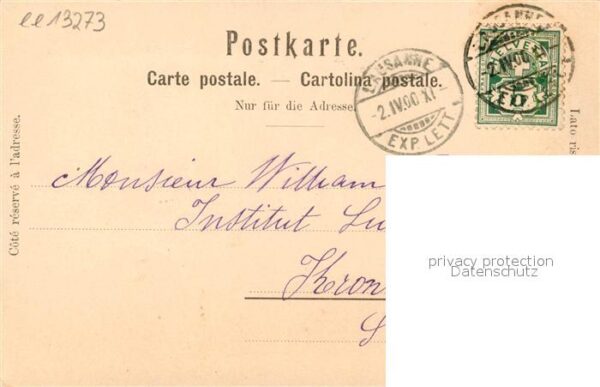 ee13273
Postkarte.
Carte postale. — Cartolina postale.
Nur für die Adresse.
LAUSANNE
-2.IV.00 XI
EXP. LETT
HELVETIA
Côté réservé à l'adresse.
Lato ris
Monsieur William
Institut
Kron
privacy protection
Datenschutz